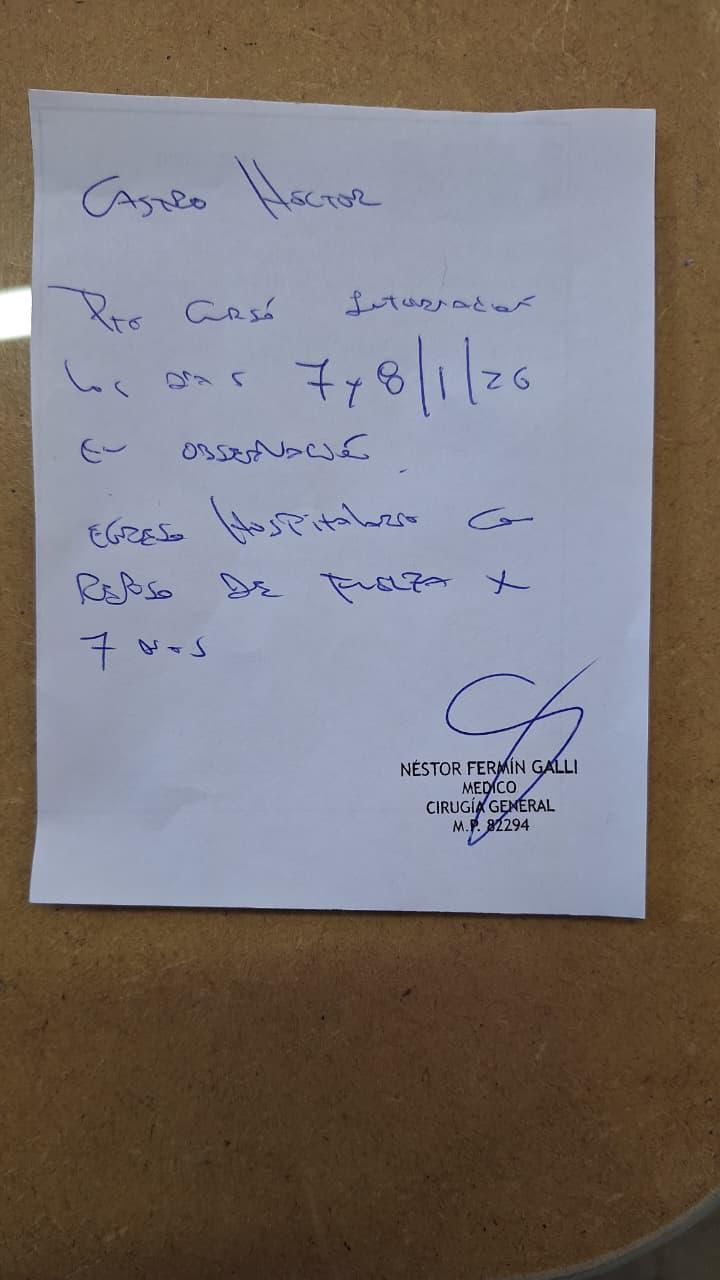 CASTRO HÉCTOR
Pte CURSÓ Internación
los DÍAS 7 y 8/1/26
EN OBSERVACIÓN
EGRESO Hospitalario CON
REPOSO DE FUERZA X
7 DÍAS
NÉSTOR FERMÍN GALLI
MEDICO
CIRUGÍA GENERAL
M.P. 82294